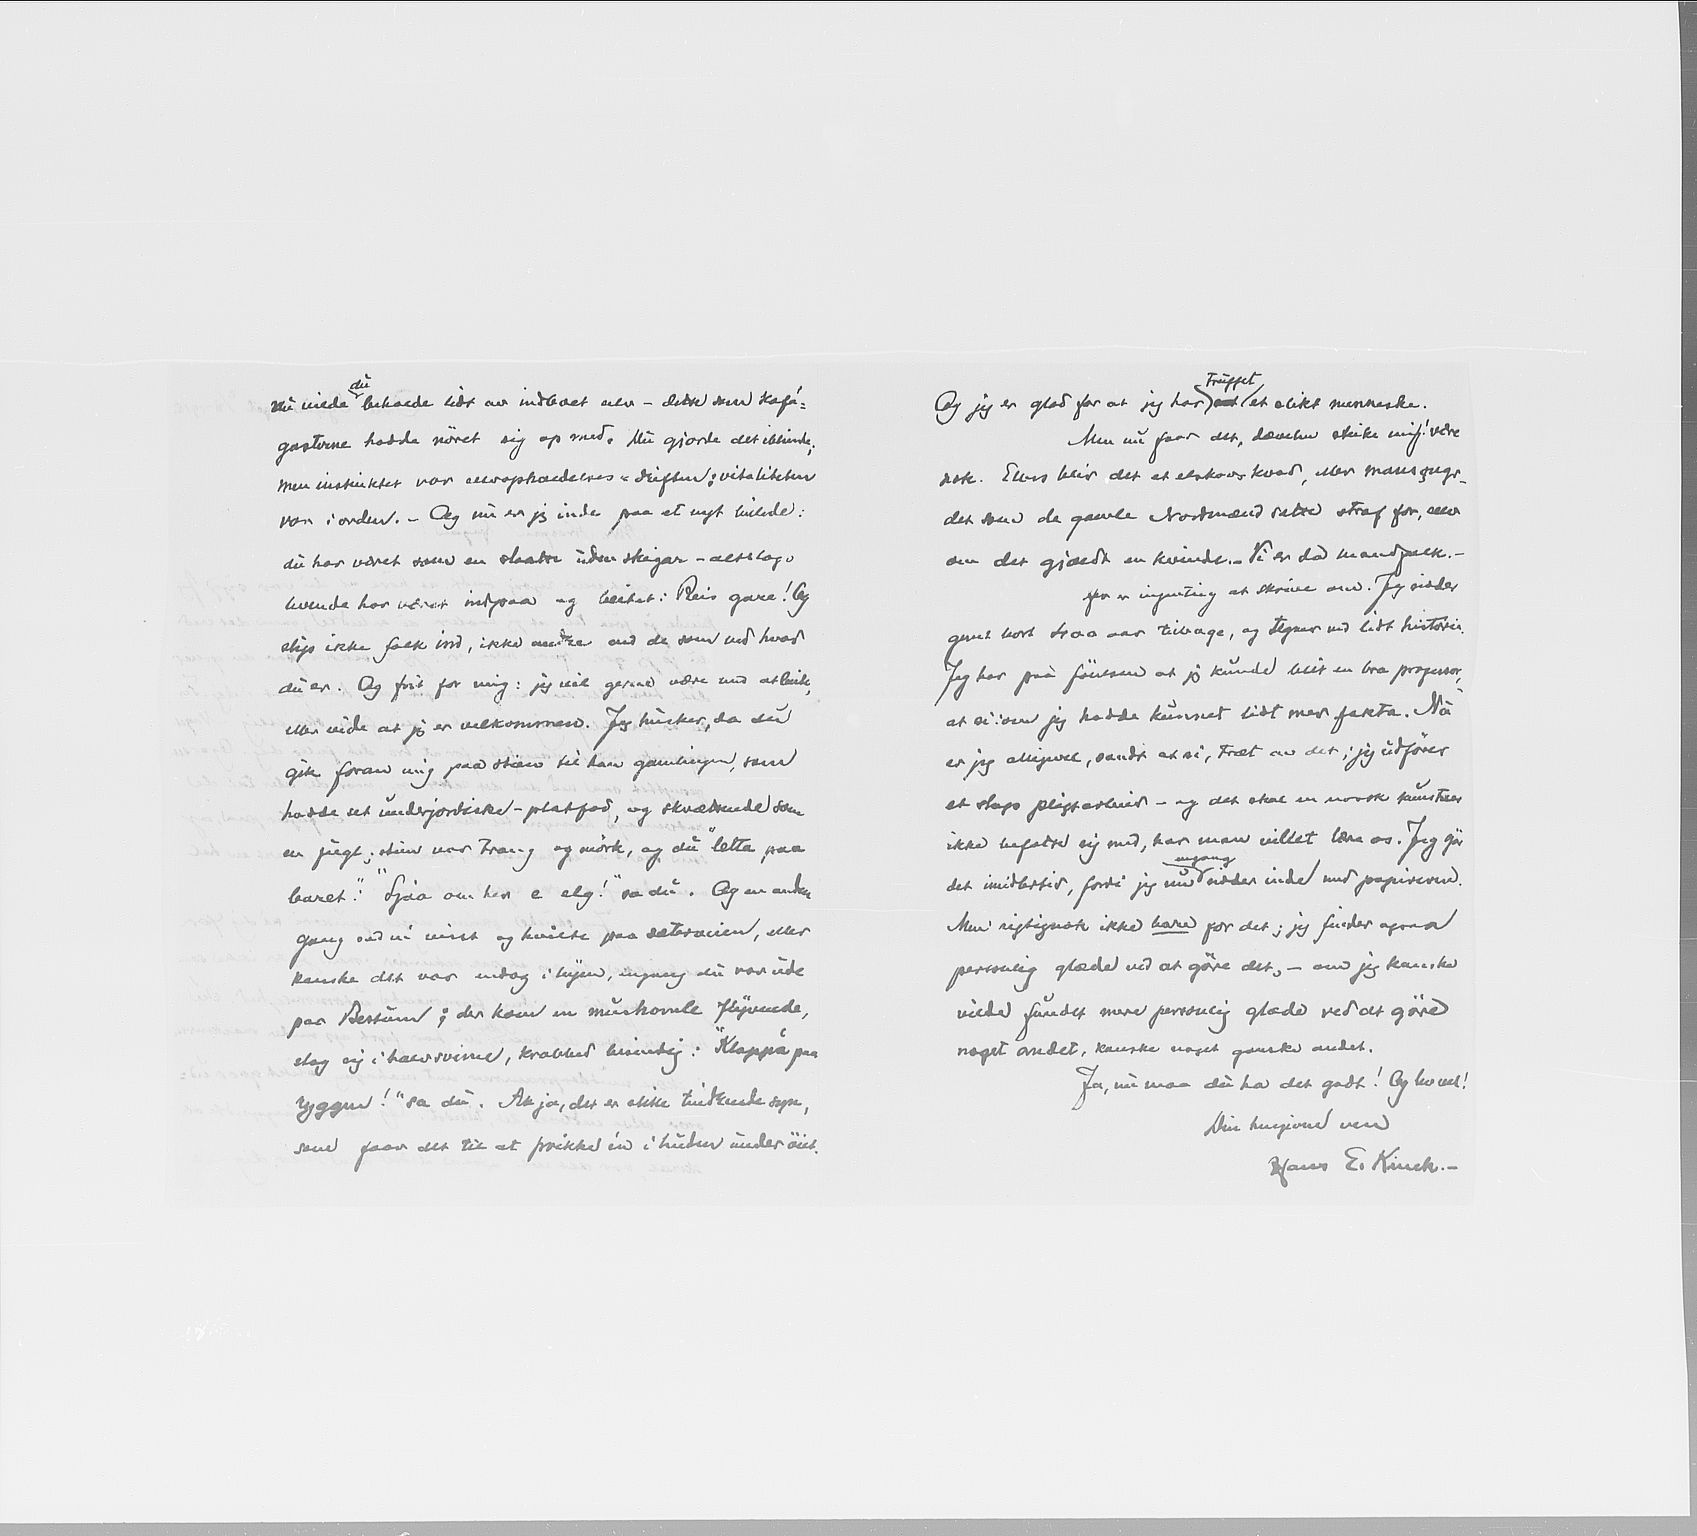 Nu vilde du beholde lidt av indlevet selv – dette som kafé-
gasterne hadde nöret sig op med. Nu gjorde det iblinde;
men instinktet var selvopholdelses-driften; vitaliteten
var i orden. – Og nu er jeg inde paa et nyt billede:
du har været som en slaatte uden skigar – altslags
har været indpaa og beitet: Reis gare! Og
slip ikke folk ind, ikke andre end de som ved hvad
du er. Og frit for mig: jeg vil gerne være med at beite,
eller vide at jeg er velkommen. Jeg husker, da du
gik foran mig paa stien til han gamlingen, som
hadde set underjordiske – platfod, og skvættende som
en fugl; stien var trang og mörk, og du "letta paa
baret": "Sjaa om her e elg!" sa du. Og en anden
gang sad vi visst og hvilte paa sæterveien, eller
kanske det var endog i byen, engang du var ude
paa Bestum; der kom en murhomle flyvende,
slog sig i halssvime, krabbed : "Klappå paa
ryggen!" sa du. Ak ja, det er slike syn,
som faar det til at prikke in i huden under öiet.
Og jeg er glad for at jeg har truffet et slikt menneske.
Men nu faar det, dævelen steike mig! være
nok. Ellers blir det et elskovskvad, eller mansöngr –
det som de gamle Nordmænd satte straf for, selv
om det gjældt en kvinde. – Vi er da mandfolk. –
er ingenting at skrive om. Jeg sidder
gemt bort aar tilbage, og ved lidt historie.
Jeg har paa fölelsen at jeg kunde blit en bra professor,
at si: om jeg hadde kunnet lidt mer fakta. Nå
er jeg alligevel, sandt at si, træt av det; jeg udförer
et slags pligtarbeid – og det skal en norsk kunstner
ikke befatte sig med, har man villet lære os. Jeg gör
det imidlertid, fordi jeg nu engang sidder inde med papirerne.
Men rigtignok ikke bare for det; jeg finder ogsaa
personlig glæde ved at göre det, – om jeg kanske
vilde fundet mere personlig glæde ved at göre
noget andet, kanske noget ganske andet.
Ja, nu maa du ha det godt! Og lev vel!
Din hengivne ven
Hans E. Kinck. –